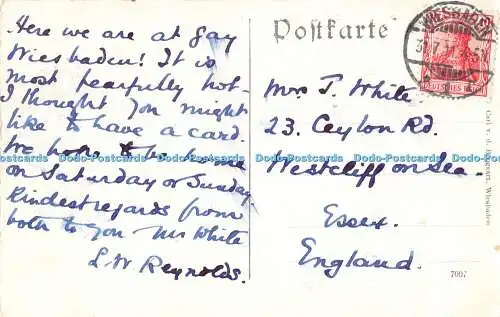 Here we are at gay
Wiesbaden! It is
most fearfully hot-
I thought you might
like to have a card.
We hope to be home
on Saturday or Sunday.
Kindest regards from
both to you Mr White
L.W. Reynolds.
Postkarte
WIESBADEN
DEUTSCHES REICH
Mrs T. White
23. Ceylon Rd.
Westcliff on Sea.
Essex.
England.
7007
Wiesbaden
Dodo-Postcards Dodo-Postcards Dodo-Postcards Dodo-Postcards Dodo-Postcards Dodo-Postcards